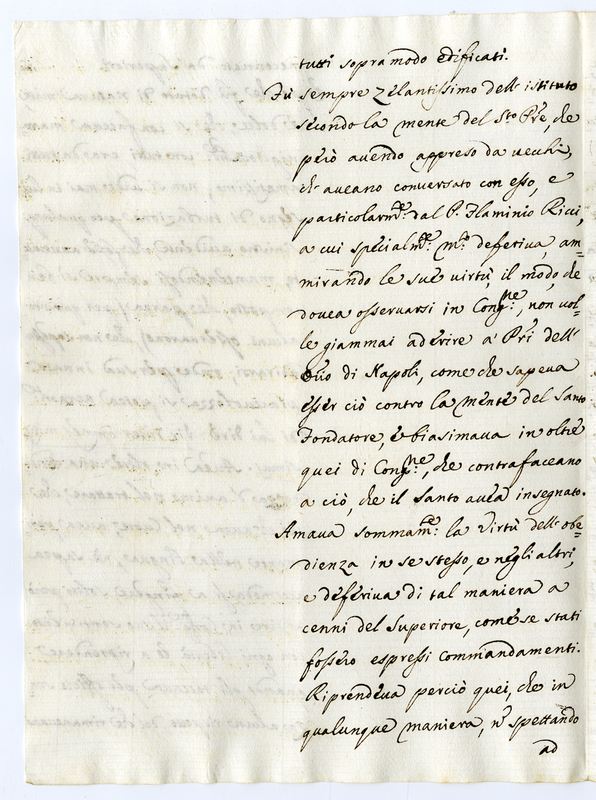 tutti sopramodo edificati.
Fù sempre zelantissimo dell'istituto
secondo la mente del Sto Pre, che
però avendo appreso da vecchi,
ch'aveano conversato con esso, e
particolarmte: dal P. Flaminio Ricci,
a cui specialmte: mto defetiva, am=
mirando le sue virtù, il modo, che
dovea osservarsi in Congne:, non vol=
le giammai aderire a' Pri dell'
Orio di Napoli, come che sapeva
esser ciò contro la mente del Santo
Fondatore, e biasimava in oltre
quei di Congne:, che contrafaceano
a ciò, che il Santo avea insegnato.
Amava sommamte: la virtù dell'obe=
dienza in se stesso, e negli altri,
e deferiva di tal maniera a
cenni del Superiore, come se stati
fossero espressi Commandamenti.
Riprendeva perciò quei, che in
qualunque maniera, nō spettando
ad